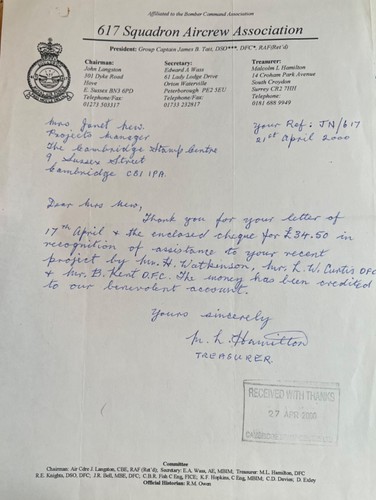 Affiliated to the Bomber Command Association
617 Squadron Aircrew Association
President: Group Captain James B. Tait, DSO***, DFC*, RAF(Ret'd)
Chairman:
John Langston
301 Dyke Road
Hove
E. Sussex BN3 6PD
Telephone/Fax:
01273 503317
Secretary:
Edward A Wass
61 Lady Lodge Drive
Orton Waterville
Peterborough PE2 5EU
Telephone/Fax:
01733 232817
Treasurer:
Malcolm L Hamilton
14 Croham Park Avenue
South Croydon
Surrey CR2 7HH
Telephone:
0181 688 9949
Mrs. Janet New.
Projects Manager
The Cambridge Stamp Centre
9, Sussex Street
Cambridge CB1 1PA.
Your Ref: JN/617
21st April 2000
Dear Mrs New,
Thank you for your letter of
17th April & the enclosed cheque for £34.50 in
recognition of assistance to your recent
project by Mr. H. Watkinson, Mr. L. W. Curtis DFC
& Mr. B. Kent D.F.C. The money has been credited
to our benevolent account.
Yours sincerely
M. L. Hamilton
TREASURER
RECEIVED WITH THANKS
27 APR 2000
Committee
Chairman: Air Cdre J. Langston, CBE, RAF (Ret'd); Secretary: E.A. Wass, AE, MBIM; Treasurer: M.L. Hamilton, DFC
R.E. Knights, DSO, DFC; J.R. Bell, MBE, DFC; C.B.R. Fish C Eng, FICE; K.F. Hopkins, C Eng, MBIM; C.D. Davies; D. Exley
Official Historian: R.M. Owen